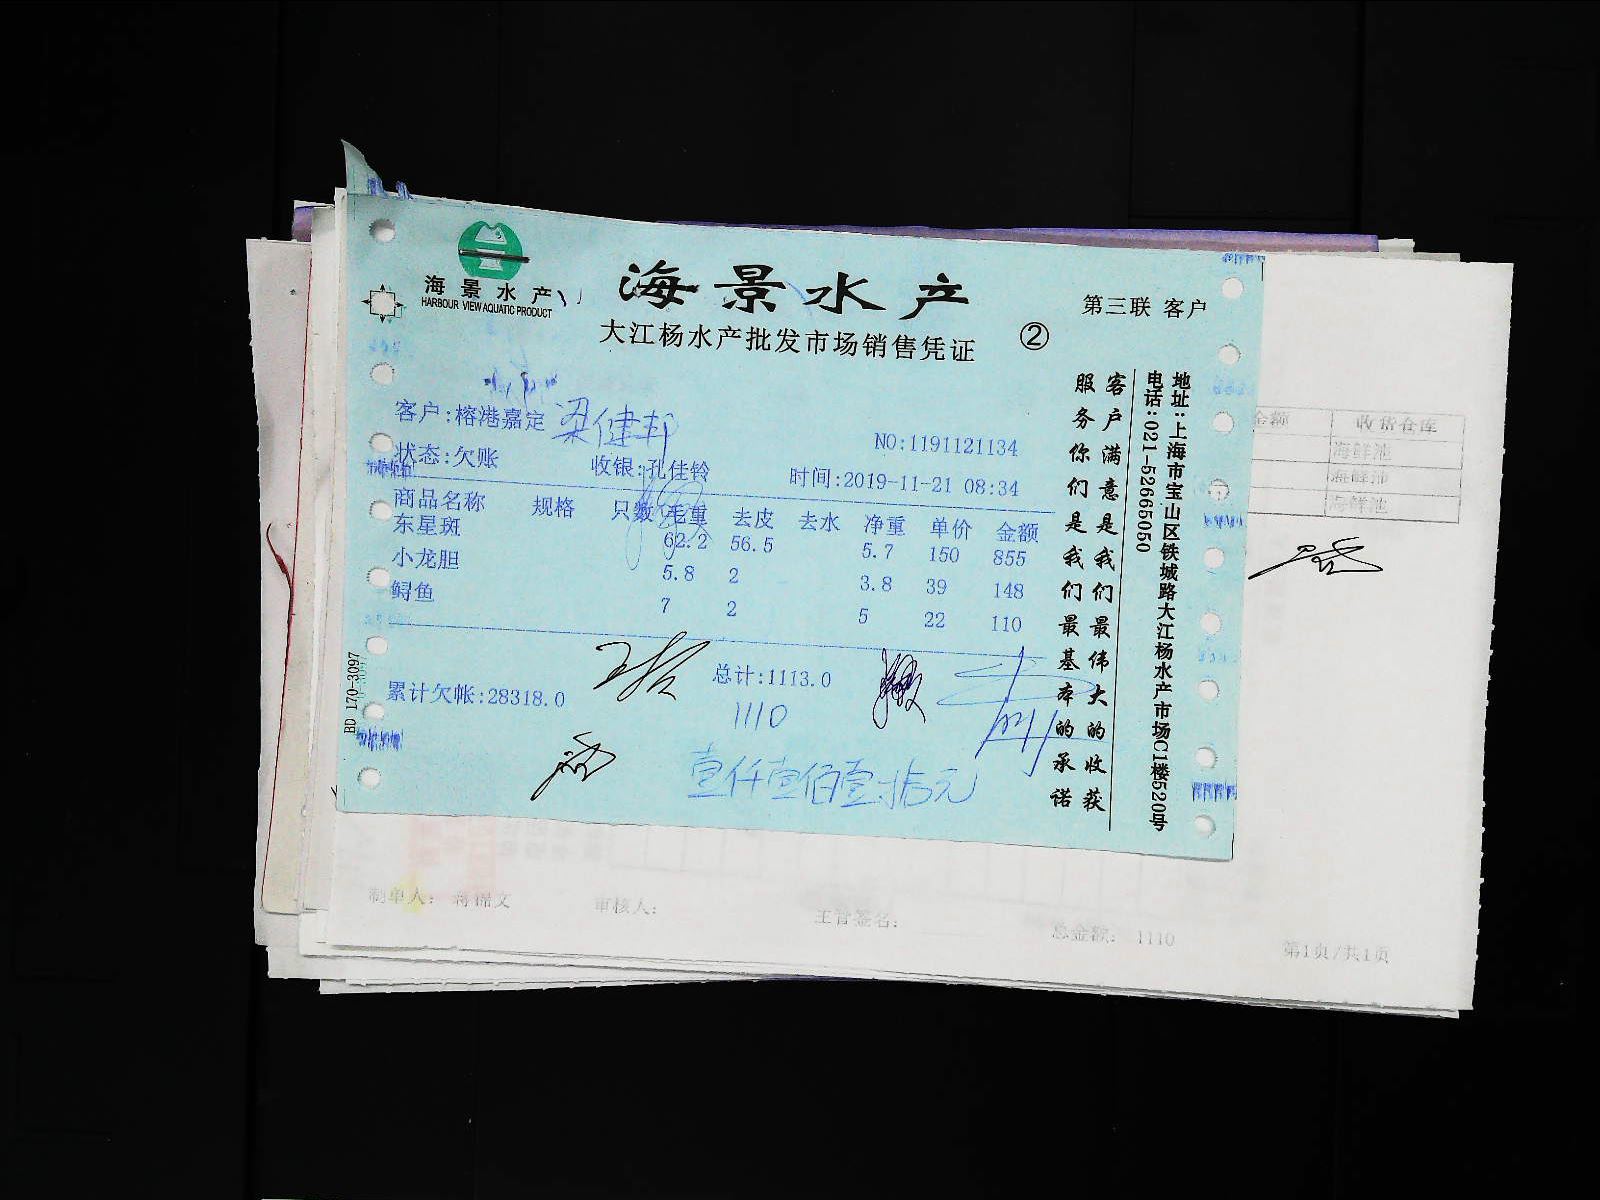 海景水产
HARBOUR VIEW AQUATIC PRODUCT
海景水产
大江杨水产批发市场销售凭证
②
第三联 客户
客户:榕港嘉定 梁健邦
NO:1191121134
状态:欠账 收银:孔佳铃 时间:2019-11-21 08:34
商品名称 规格 只数 毛重 去皮 去水 净重 单价 金额
东星斑 62.2 56.5 5.7 150 855
小龙胆 5.8 2 3.8 39 148
鲟鱼 7 2 5 22 110
累计欠帐:28318.0 总计:1113.0
1110
壹仟壹佰壹拾元
客户满意是我们最伟大的收获
服务你们是我们最基本的承诺
地址:上海市宝山区铁城路大江杨水产市场C1楼520号
电话:021-52665050
BD 170-3097
金额 收货仓库
海鲜池
海鲜池
海鲜池
制单人: 蒋锦文 审核人: 主管签名: 总金额: 1110
第1页/共1页